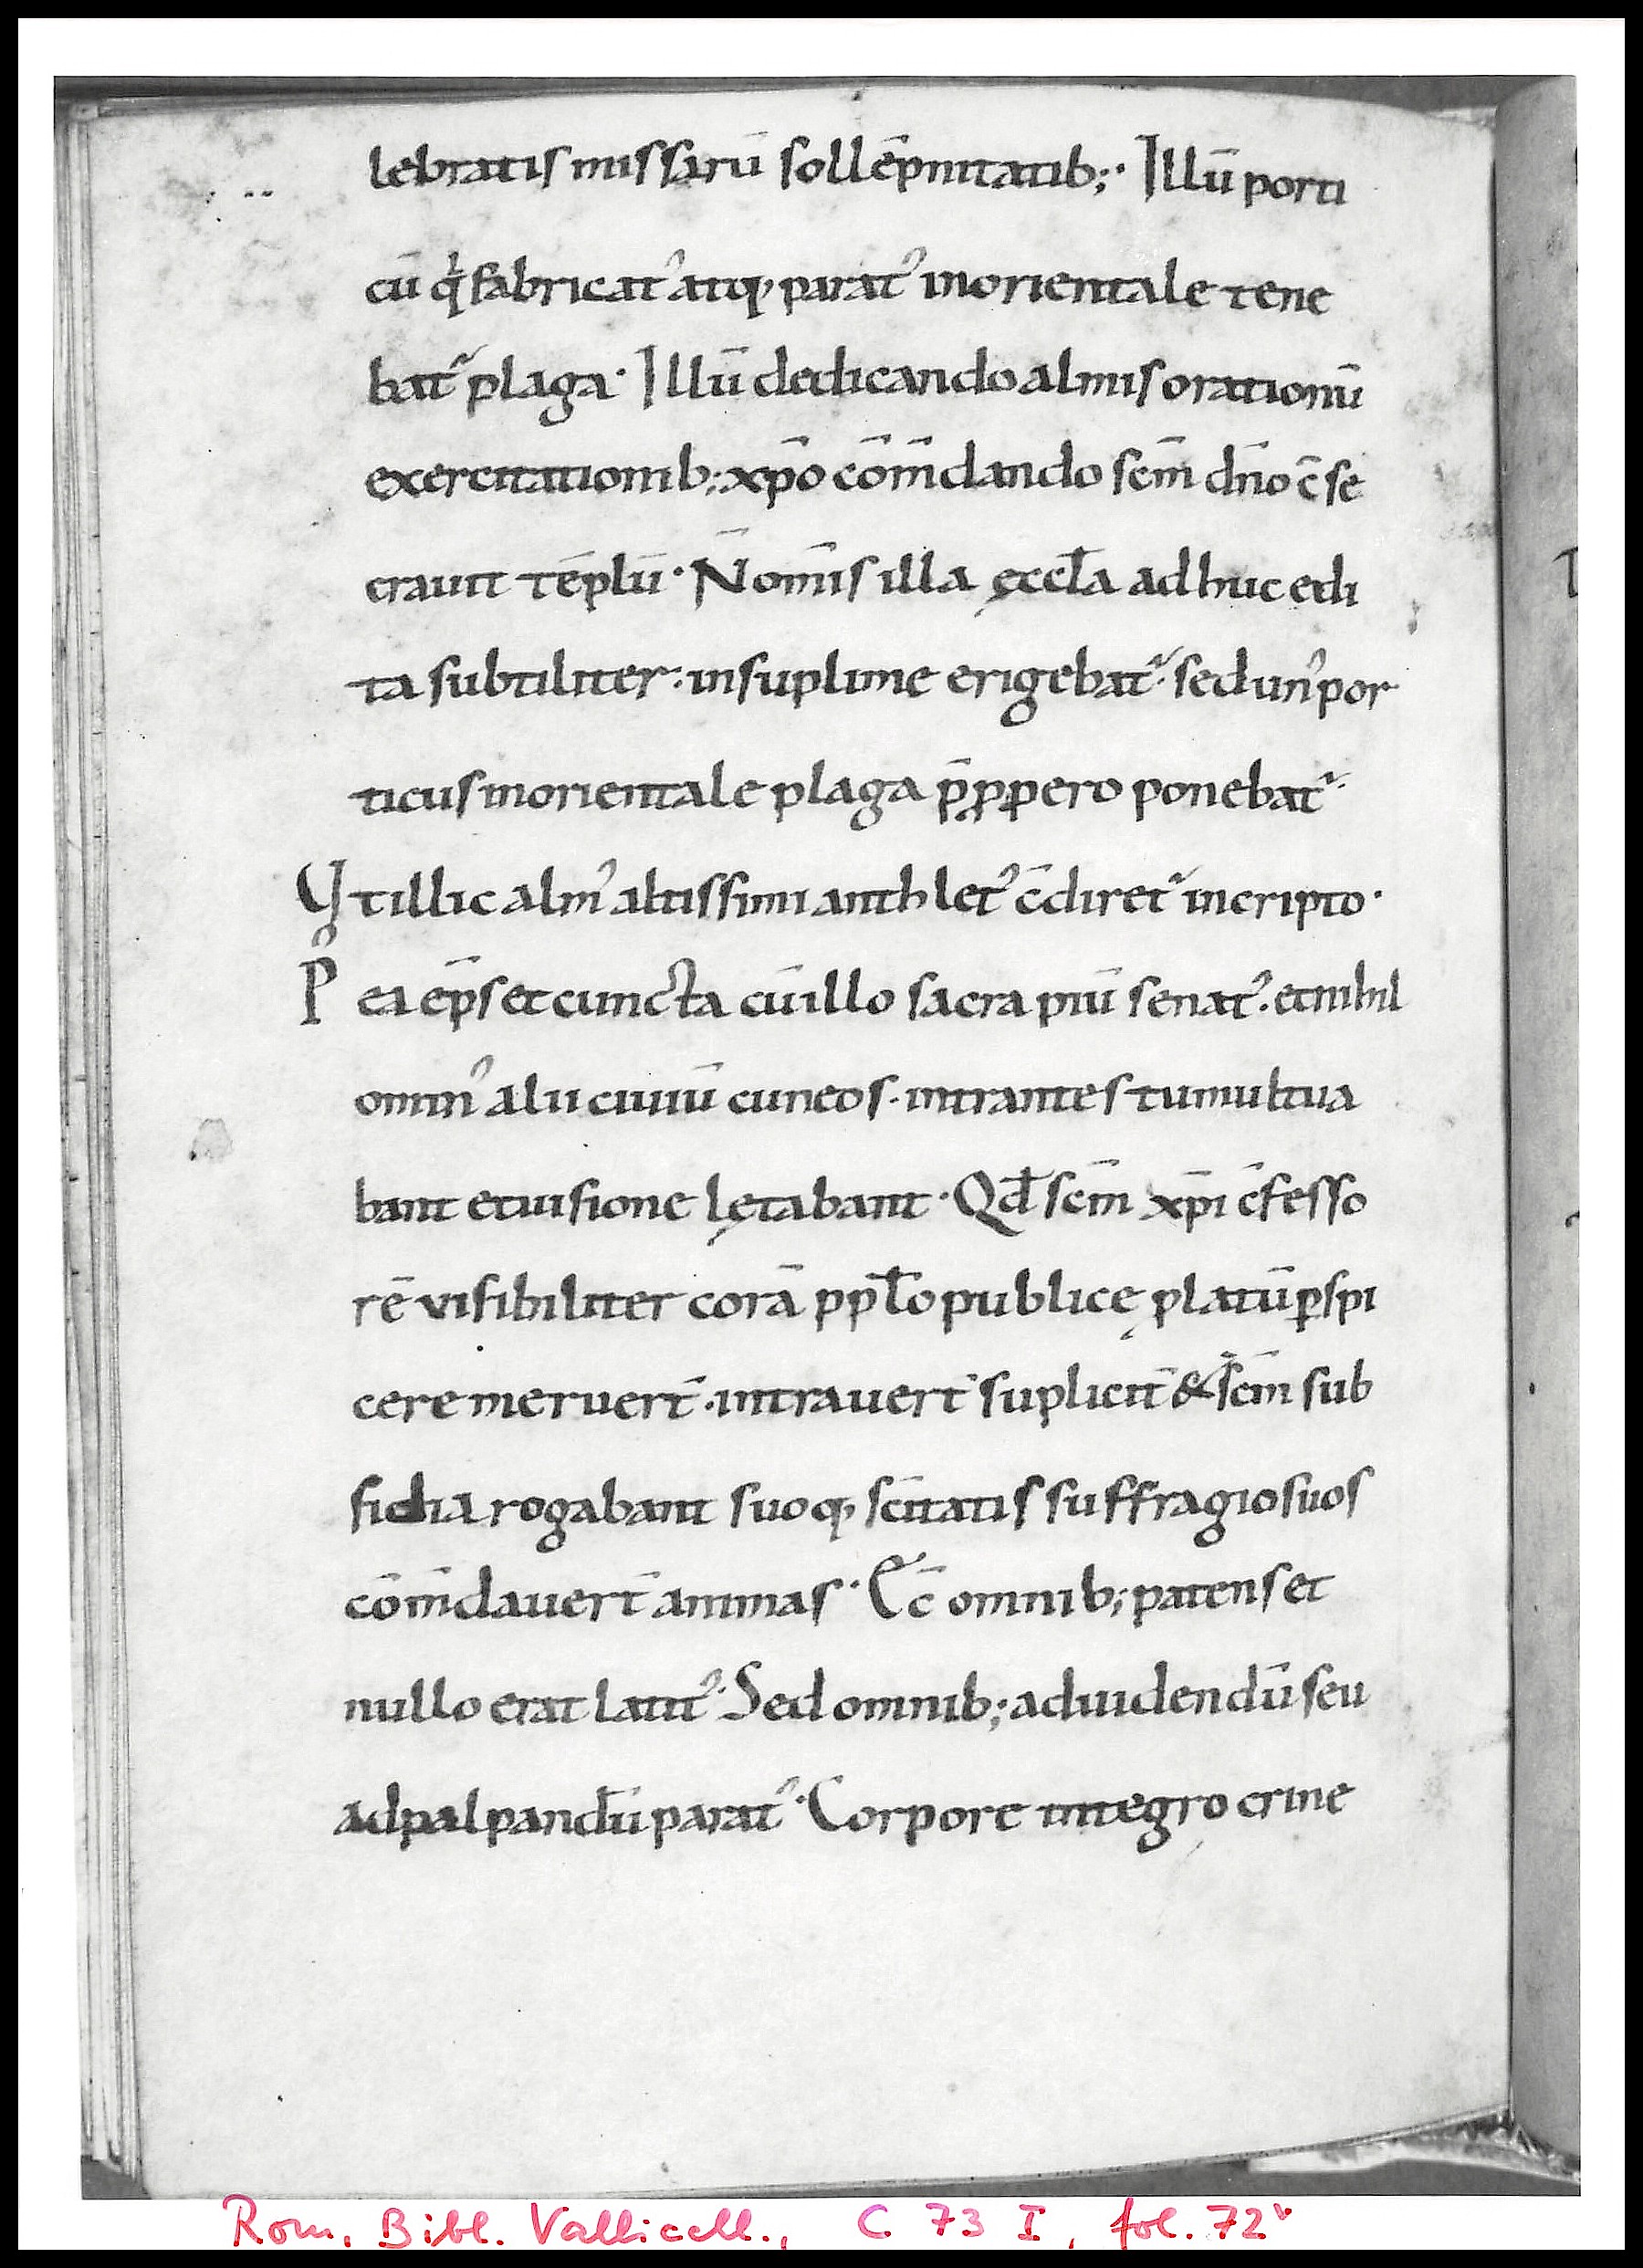 lebratis missarū sollēpnitatib;· Illū porti
cū q̇ fabricat᾽ atq, parat᾽ in orientale tene
bat᷑ plaga· Illū dedicando almis orationū
exercitationib; xp̄o com̄dando scm̄ dn̄o c̄se
crauit tēplū· N̄ om̄is illa ęccl̄a adhuc edi
ta subtiliter· in suplime erigebat᷑· sed un᾽ por
ticus in orientale plaga p̄ꝓpero ponebat᷑·
Vt illic alm᾽ altissimi anthlet᾽ c̄diret᷑ in cripto·
P᾽ ea ep̄s et cuncta cū illo sacra piū senat᾽· et nihil
omin᾽ alii ciuiū cuneos· intrantes tumultua
bant et uisione lętabant· Qd̄ scm̄ xp̄i c̄fesso
rē visibiliter corā ppl̄o publicę platū ꝑspi
cere meruert̄· intrauert̄ suplicit̄ & scm̄ sub
sidia rogabant suoq, sc̄itatis suffragio suos
com̄dauert̄ animas· Ec̄ omnib; patens et
nullo erat latit᾽· Sed omnib; ad uidendū seu
ad palpandū parat᾽· Corpore integro crine
Rom, Bibl. Vallicell., C 73 I, fol. 72ᵛ